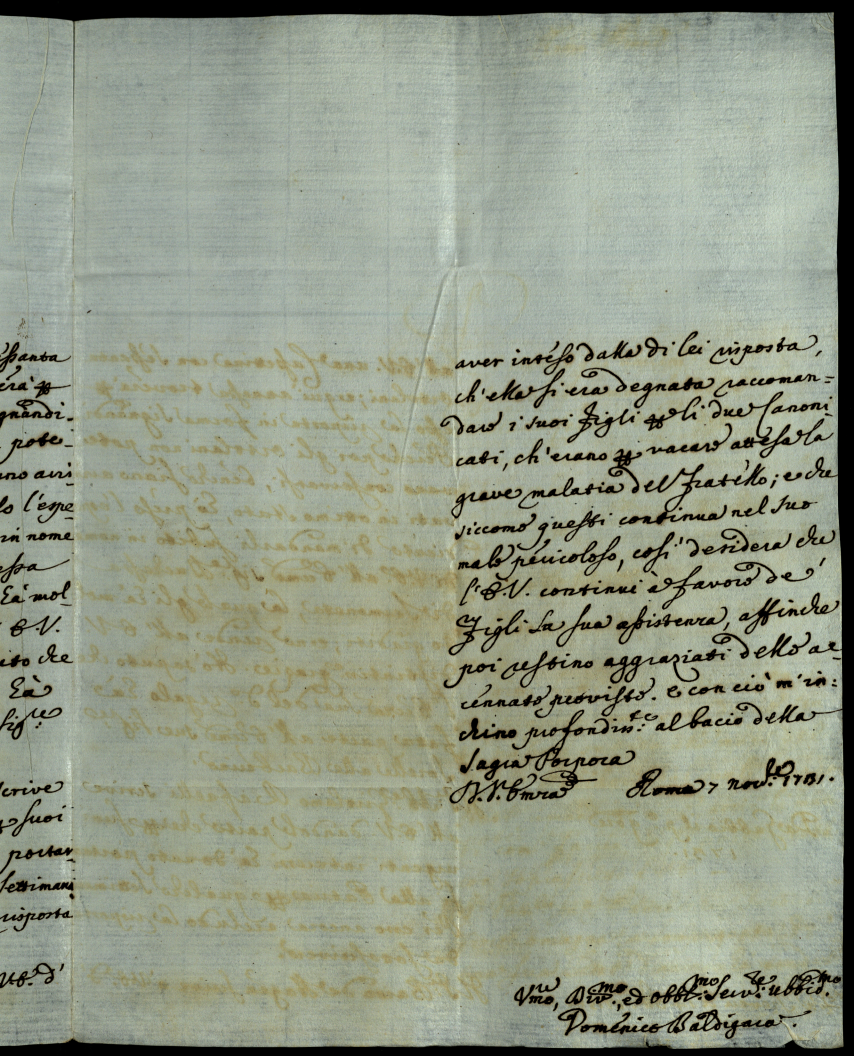 essanta
erà p
gnandi-
pote-
nno avi-
lo l'espe-
in nome
essa
Eà mol-
E.V.
ito che
Eà
sig.re
scrive
p suoi
portar-
settimani
risposta
d'
aver inteso dalla di lei risposta,
ch'ella si era degnata raccoman=
dare i suoi Figli p li due Canoni=
cati, ch'erano p vacare attesa la
grave malatia del Fratello; e che
siccome questi continua nel suo
male pericoloso, così desidera che
l'E.V. continui à favore de'
Figli la sua assistenza, affinche
poi restino aggraziati delle ac=
cennate proviste. e con ciò m'in=
chino profondis.te al bacio della
Sagra Porpora
D.V. Emza Roma 7 nov.re 1731.
Vmo, Div.mo, ed obbl.mo Serv.re ubbid.mo
Domenico Baldigara.